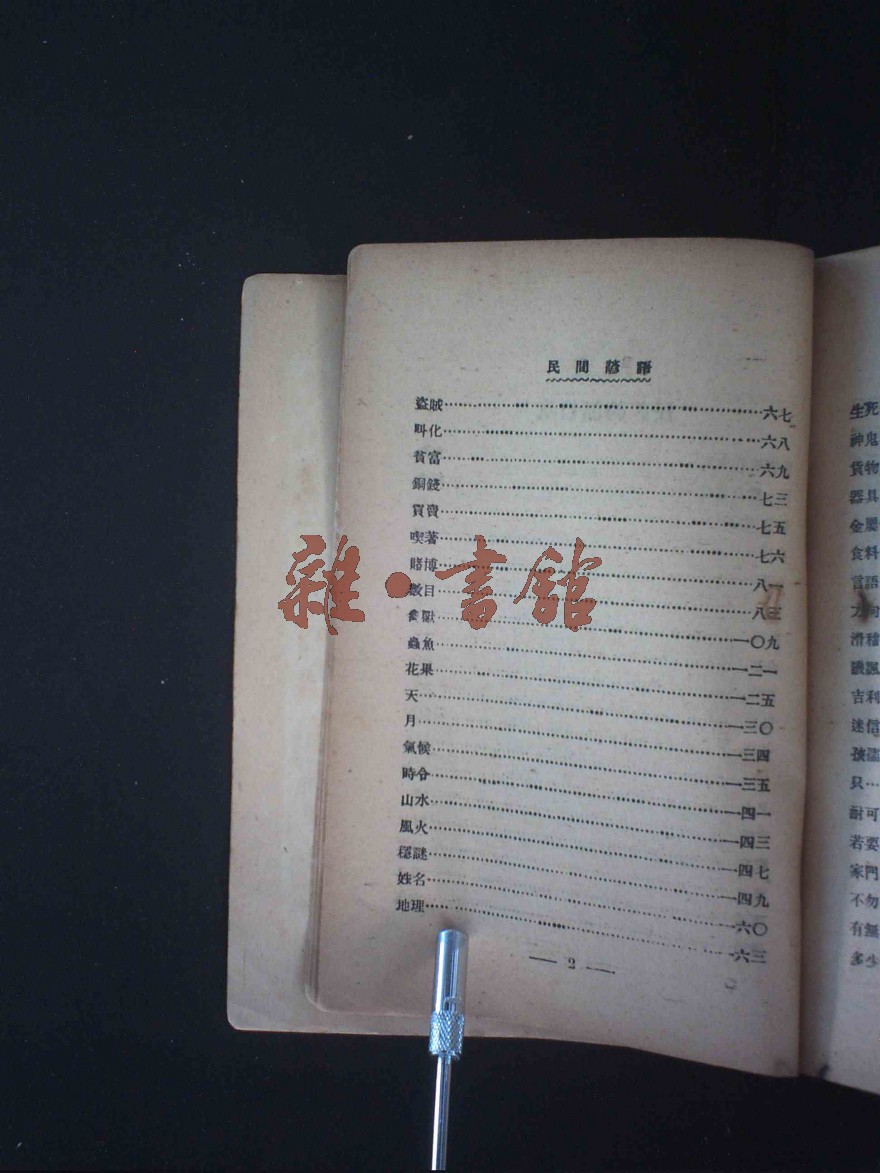 民間諺語
盜賊……六七
叫化……六八
貧富……六九
銅錢……七三
買賣……七五
喫著……七六
賭博……八一
數目……八三
禽獸……一〇九
蟲魚……一二一
花果……一二五
天……一三〇
月……一三四
氣候……一三五
時令……一四一
山水……一四三
風火……一四七
穩謎……一四九
姓名……一六〇
地理……一六三
— 2 —
生死
神鬼
貨物
器具
金屬
食料
言語
方向
滑稽
譏諷
吉利
迷信
只…
耐可
若要
家門
不勿
有無
多少
雜·書館